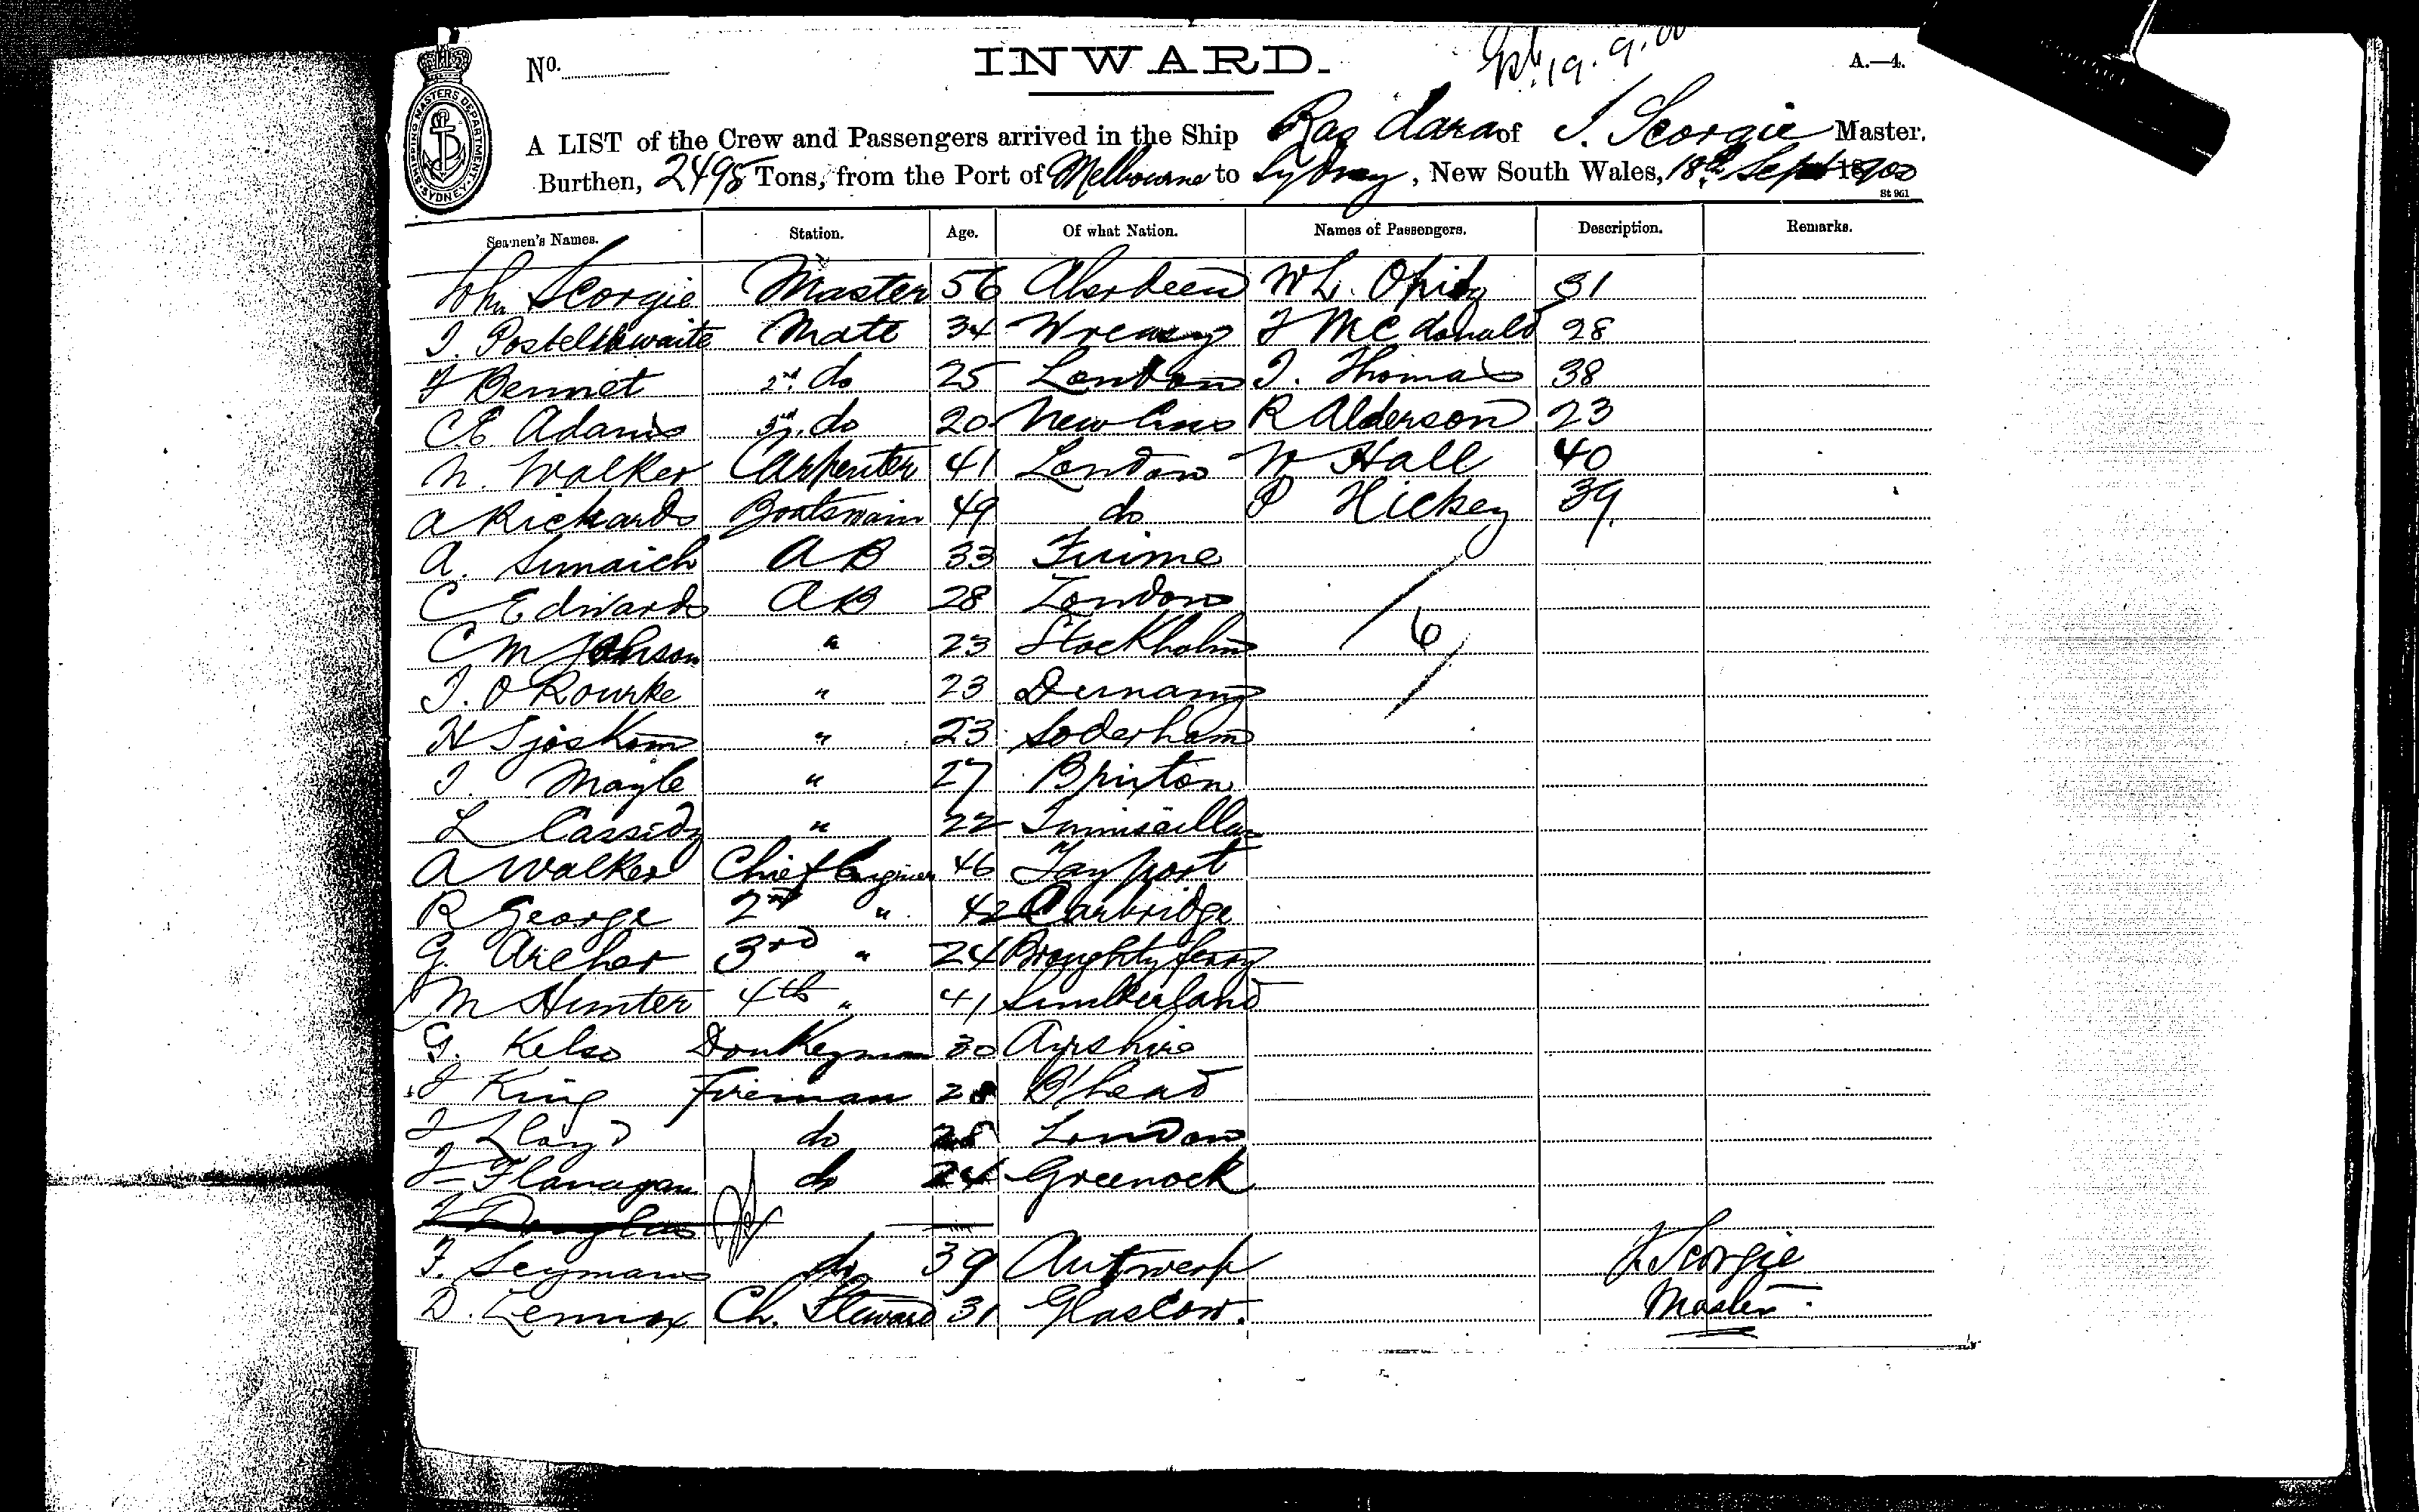 No. INWARD. 19.9.00 A.—4.
SHIPPING MASTERS DEPARTMENT SYDNEY
A LIST of the Crew and Passengers arrived in the Ship Ras dara of J. Scorgie Master.
Burthen, 2498 Tons, from the Port of Melbourne to Sydney, New South Wales, 18th Sept 1900
St 961
Seamen's Names. Station. Age. Of what Nation. Names of Passengers. Description. Remarks.
John Scorgie Master 56 Aberdeen W L. Opitz 31
J. Postelthwaite Mate 34 J McDonald 28
J Bennet 2nd do 25 London J. Thomas 38
C E Adams 3rd. do 20 R Alderson 23
N. Walker Carpenter 41 London W Hall 40
A Richards Boatswain 49 do P Hickey 39
A. AB 33 Fiume
C Edwards AB 28 London
C M Johnson " 23 Stockholm 6
J. O Rourke " 23
H " 23 Soderham
J. Mayle " 27 Brixton
L Cassidy " 22
A Walker Chief Engineer 46 Tayport
R George 2nd " 42 Carbridge
G. Archer 3rd " 24 Broughty ferry
M Hunter 4th " 41 Sunderland
G. Kelso Donkeyman 30 Ayrshire
J King Fireman 28 B'head
J Lloyd do 28 London
J Flanagan do 24 Greenock
J Douglas
F. Seymans do 39 Antwerp J Scorgie
D. Lennox Ch. Steward 31 Glascow. Master